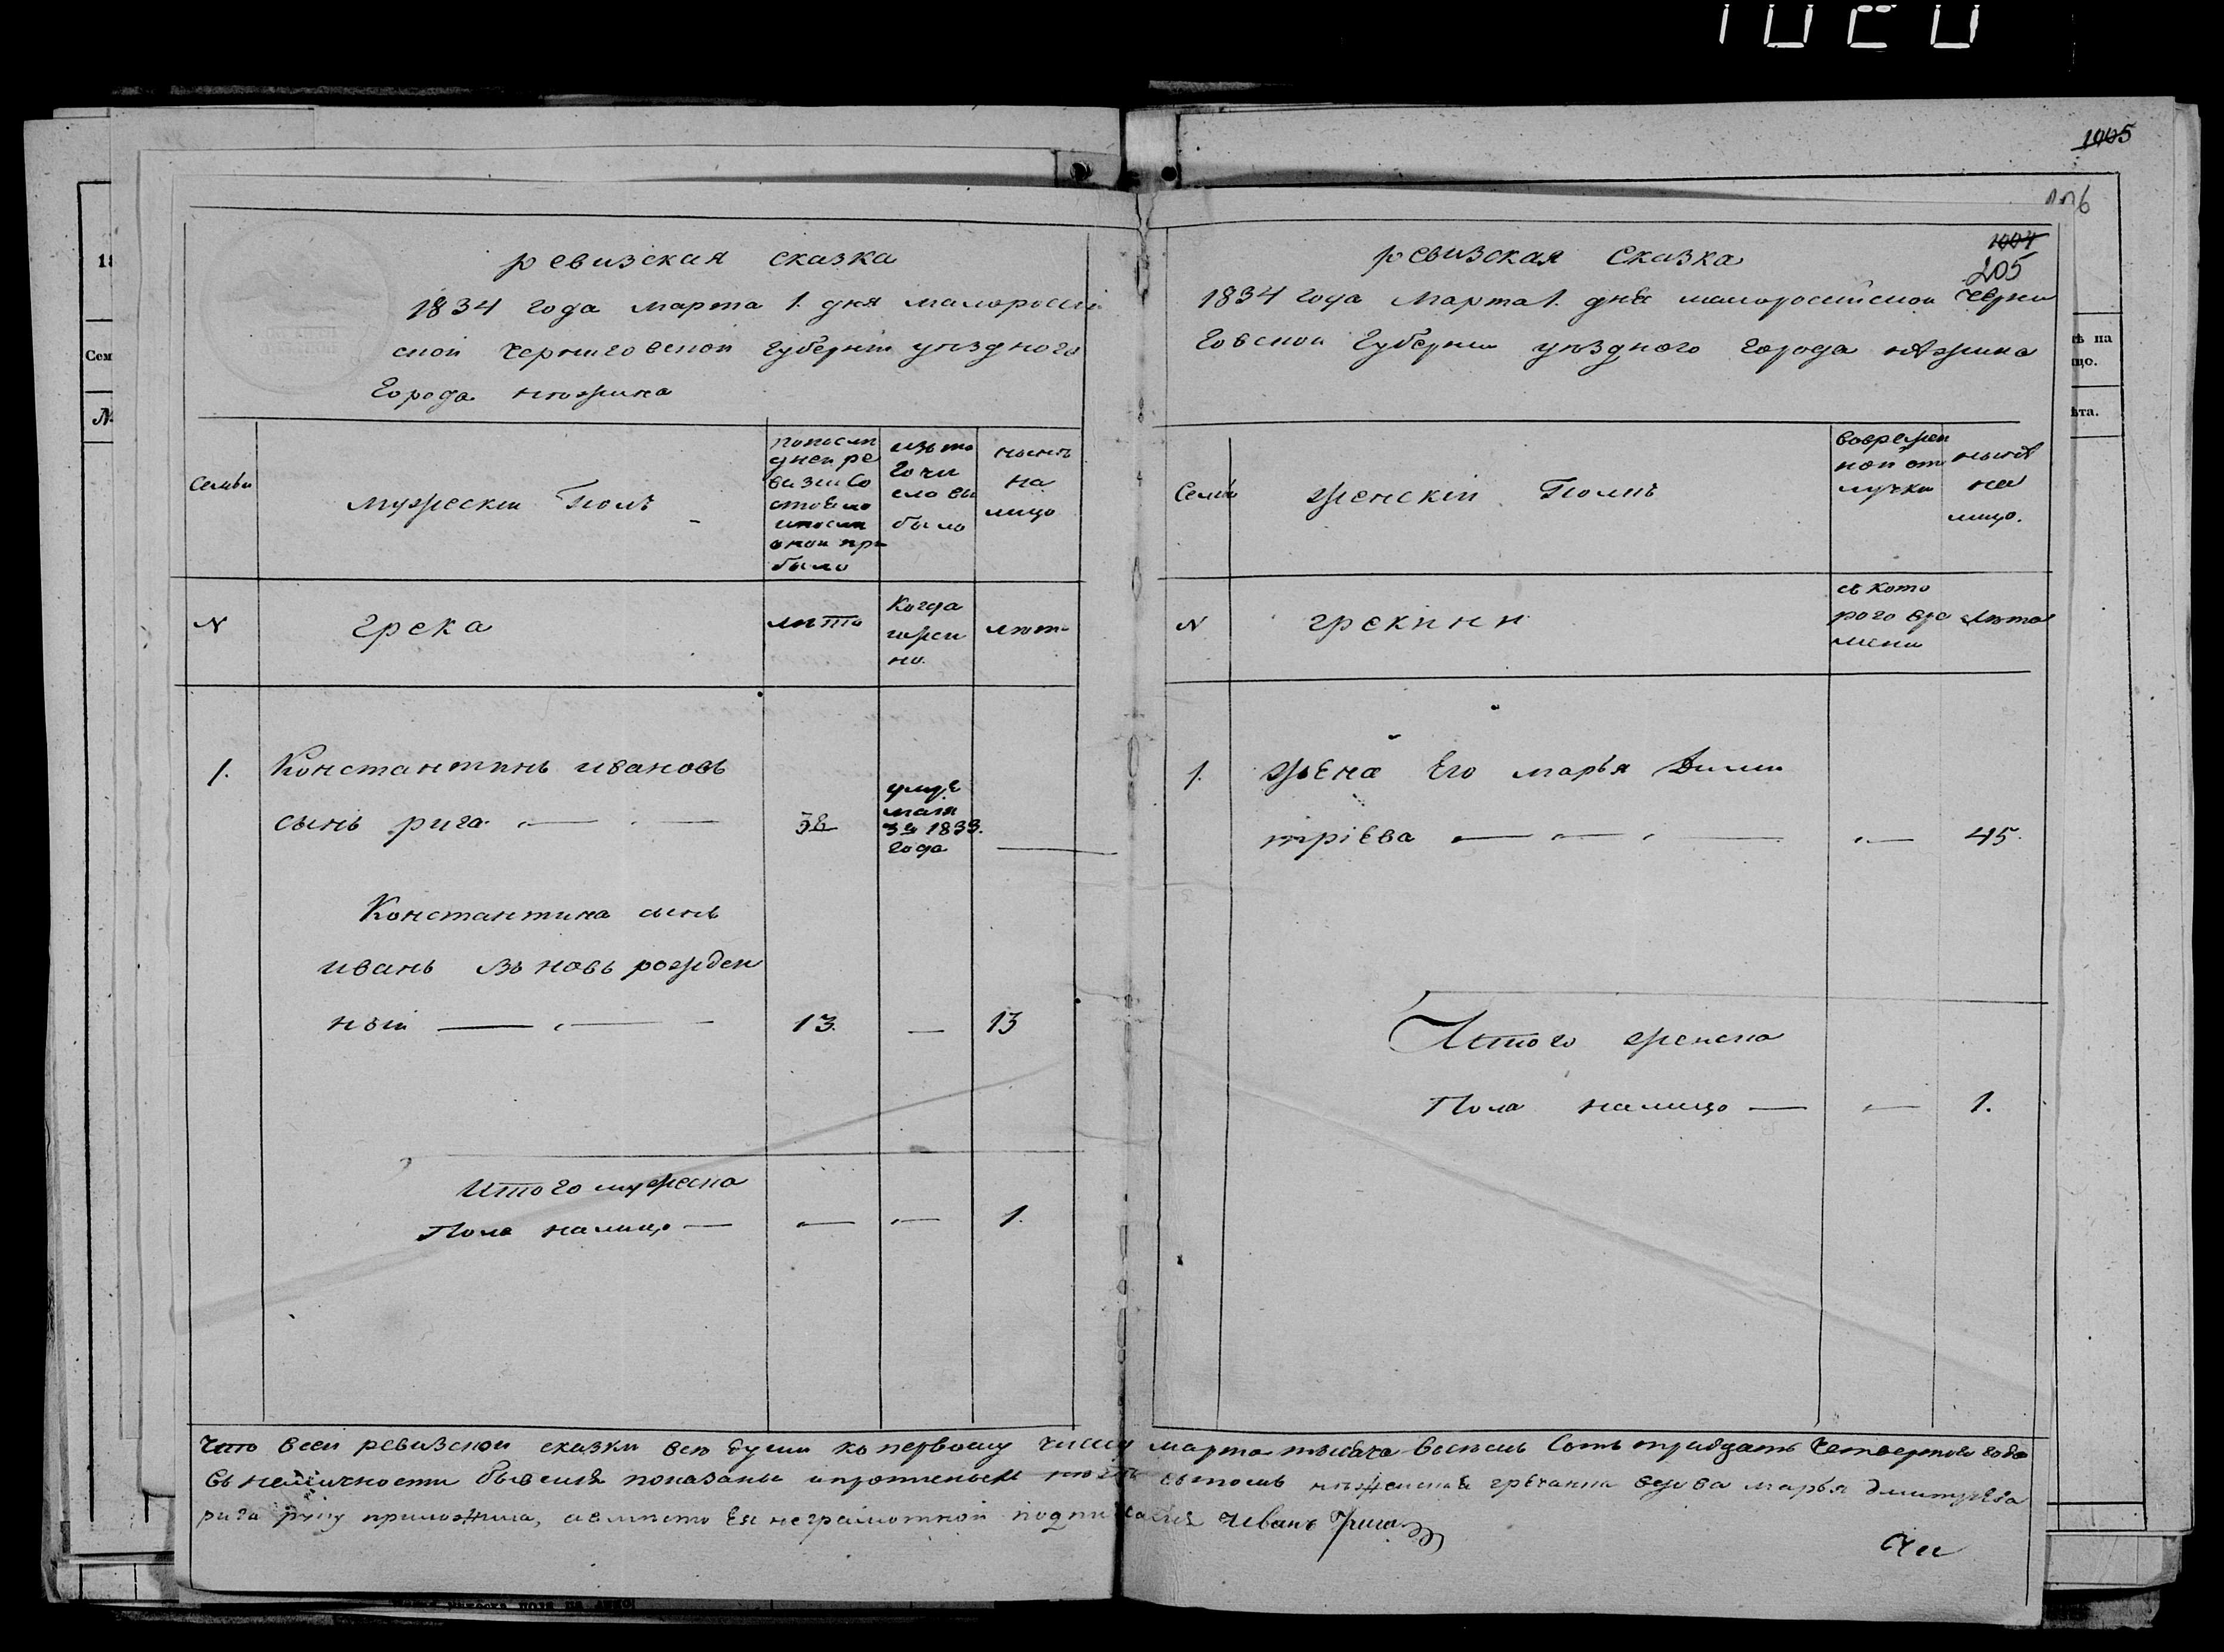 1020
1005
106
1004
205
ревизская сказка
1834 года марта 1. дня малоросій
ской черниговской губерніи уѣздного
города нѣжина
Семьи
мужескій Полъ
попослѣ
дней ре
визіи Со
стояло
ипослѣ
оной при
было
изъ то
го чи
сла вы
было
нынѣ
на
лицо
N
грека
лѣта
Когда
имен
но.
лѣта
1.
Константинъ ивановъ
сынъ рига
38
умре
мая
3го 1833.
года
Константина сынъ
иванъ въ новь рожден
ный
13.
13
Итого мужеска
Пола налицо
1.
ревизская Сказка
1834 года Марта 1. дня малороссійской Черни
говской Губерніи уѣздного города нѣжина
Семьи
женскій Полъ
вовремен
ной от
лучки
нынѣ
на
лицо.
N
грекини
съ кото
рого вре
мени
лѣта
1.
жена Его марья Дими
тріева
45.
Итого женска
Пола налицо
1.
Что всей ревизской сказки все души ко первому числу марта тысяча восемь Сотъ тридцать Четвертого года
въ наличности бывшія показаны въ томъ нѣжинская гречанка вдова марья дмитріева
рига руку приложила, авместо Ея неграмотной подписался Иванъ Рига
Чи
Сем
№
ѣ на
що.
ѣта.